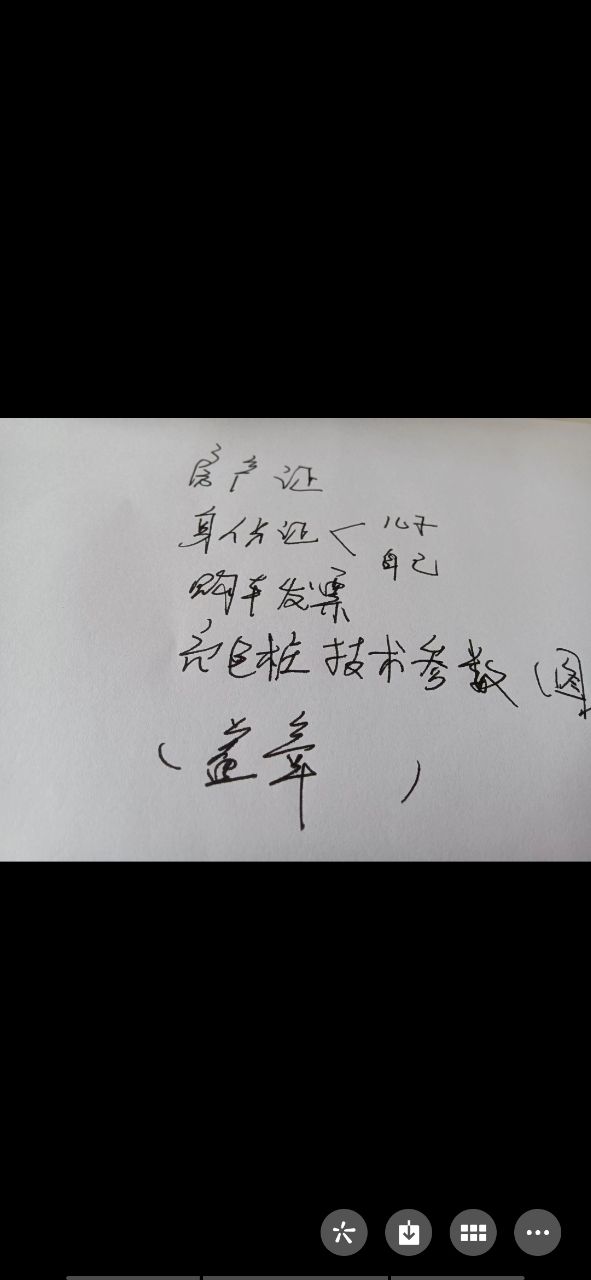 房产证
身份证 < 儿子
自己
购车发票
充电桩技术参数(图
(盖章 )